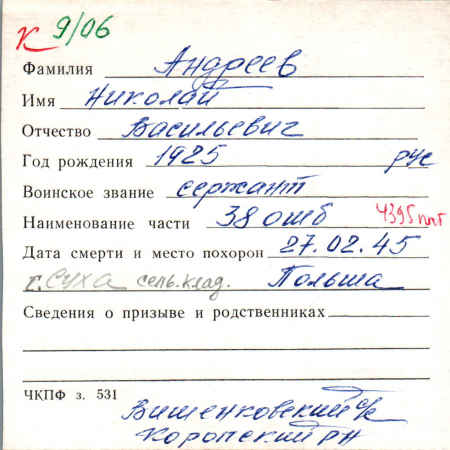 К 9/06
Фамилия Андреев
Имя Николай
Отчество Васильевич
Год рождения 1925 рус
Воинское звание сержант
Наименование части 38 ошб 4395 ппг
Дата смерти и место похорон 27.02.45
г. Суха сель. клад. Польша
Сведения о призыве и родственниках
ЧКПФ з. 531
Вишенковский с/с
Коропский р-н